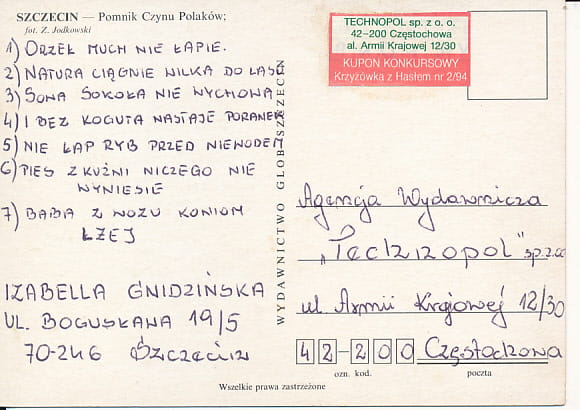 SZCZECIN — Pomnik Czynu Polaków;
fot. Z. Jodkowski
1) ORZEŁ MUCH NIE ŁAPIE.
2) NATURA CIĄGNIE WILKA DO LASU
3) SOWA SOKOŁA NIE WYCHOWA
4) I BEZ KOGUTA NASTAJE PORANEK
5) NIE ŁAP RYB PRZED NIEWODEM
6) PIES Z KUŹNI NICZEGO NIE
WYNIESIE
7) BABA Z WOZU KONIOM
LŻEJ
IZABELLA GNIDZIŃSKA
UL. BOGUSŁAWA 19/5
70-246 Szczecin
WYDAWNICTWO GLOB SZCZECIN
TECHNOPOL sp. z o. o.
42-200 Częstochowa
al. Armii Krajowej 12/30
KUPON KONKURSOWY
Krzyżówka z Hasłem nr 2/94
Agencja Wydawnicza
„Technopol" sp. z o.o
ul. Armii Krajowej 12/30
42-200 Częstochowa
ozn. kod. poczta
Wszelkie prawa zastrzeżone